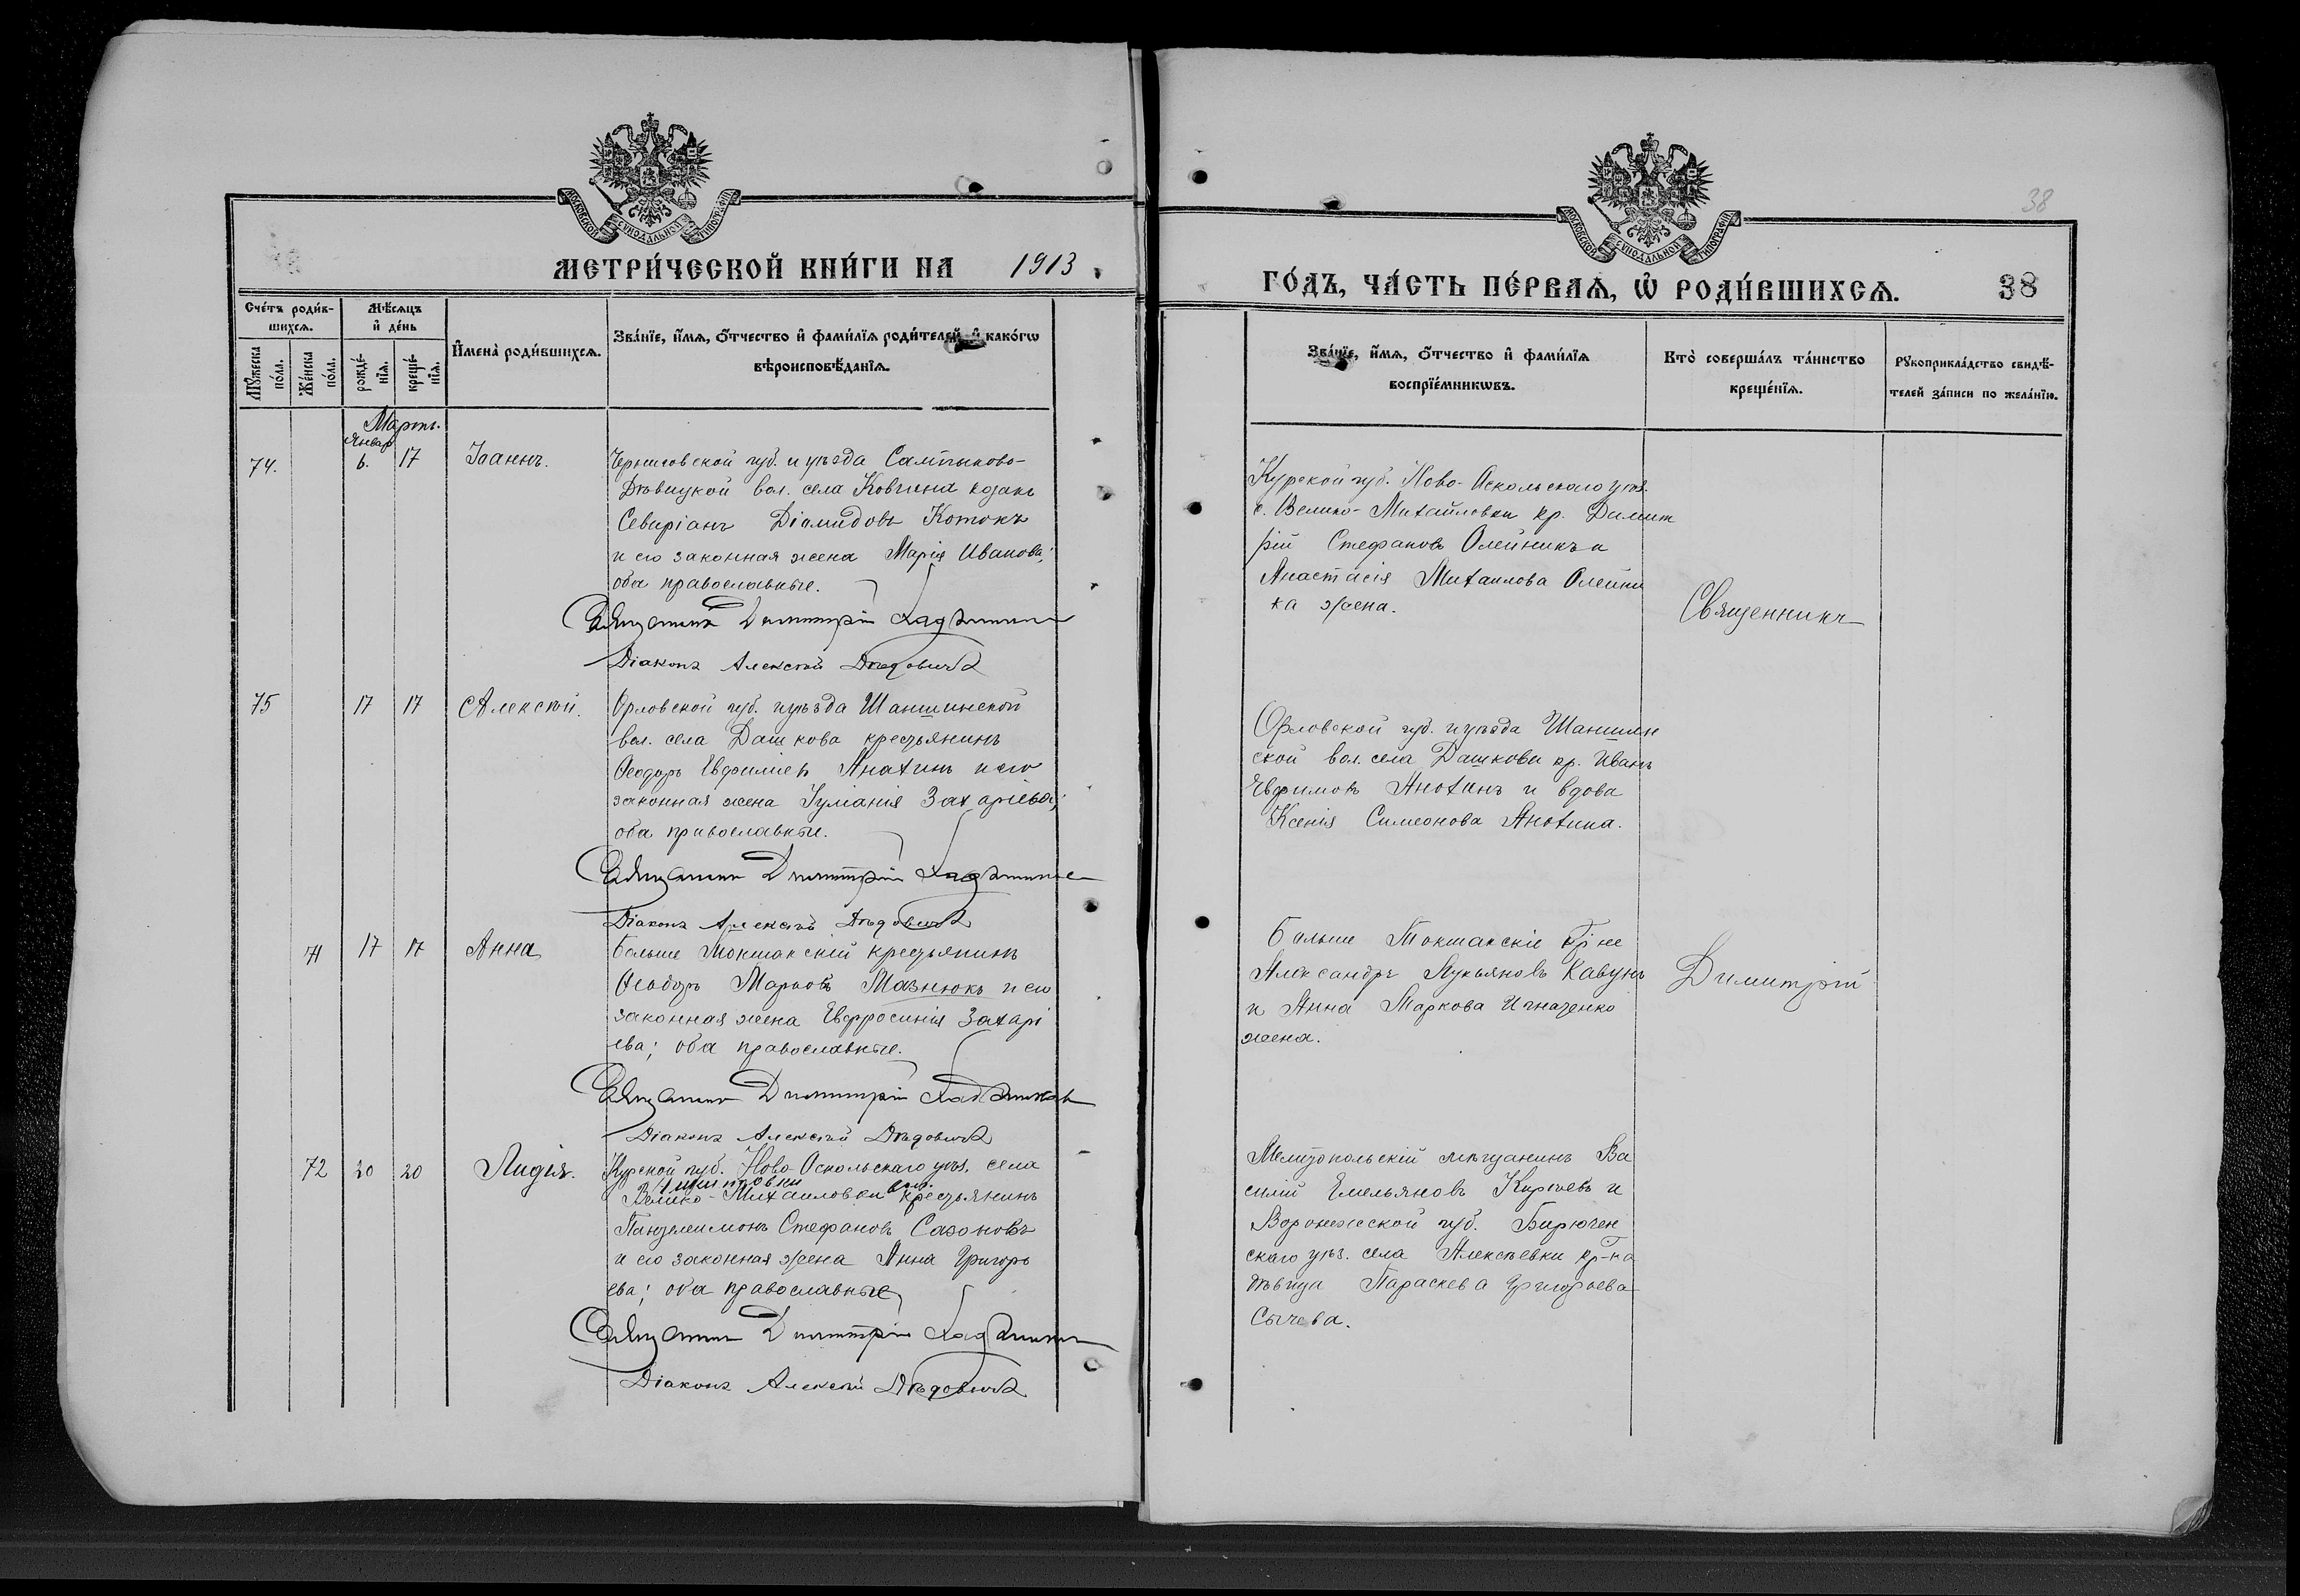 МОСКОВСКОЙ СѴНОДАЛЬНОЙ ТИПОГРАФІИ
МЕТРИ́ЧЕСКОЙ КНИ́ГИ НА 1913
Сче́тъ роди́в-
шихсѧ.
Мѣ́сѧцъ
и҆ де́нь
Мꙋ́жеска
по́ла.
Же́нска
по́ла.
рожде́-
нїѧ.
креще́-
нїѧ.
И҆мена̀ роди́вшихсѧ.
Зва́нїе, и҆́мѧ, ѻ҆́тчество и҆ фами́лїѧ роди́телей, и҆ како́гѡ
вѣроисповѣ́данїѧ.
Мартъ.
Январ
74. 6. 17 Іоаннъ.
Черниговской губ. и уѣзда
Дѣвицкой вол. села Ковчина козакъ
Севиріанъ Діамидовъ Котокъ
и его законная жена Марія Иванова;
оба православные.
Священникъ Димитрій
Діаконъ Алексѣй Дѣдовичъ
75 17 17 Алексѣй.
Орловской губ. и уѣзда Шаншинской
вол. села Дашкова крестьянинъ
Ѳеодоръ Евфиміевъ Анахинъ и его
законная жена Іуліанія Захаріева;
оба православные.
Священникъ Димитрій
Діаконъ Алексѣй Дѣдовичъ
71 17 17 Анна
Больше Токмакскій крестьянинъ
Ѳеодоръ Марковъ Мазнюкъ и его
законная жена Евфросинія Захарі
ева; оба православные.
Священникъ Димитрій
Діаконъ Алексѣй Дѣдовичъ
72 20 20 Лидія.
Курской губ. Ново-Оскольскаго уѣз. села
вол.
Велико-Михаиловки крестьянинъ
Пантелеимонъ Стефановъ Сазоновъ
и его законная жена Анна Григорь
ева; оба православные
Священникъ Димитрій
Діаконъ Алексѣй Дѣдовичъ
38
МОСКОВСКОЙ СѴНОДАЛЬНОЙ ТИПОГРАФІИ
ГО́ДЪ, ЧА́СТЬ ПЕ́РВАѦ, Ѡ҆ РОДИ́ВШИХСѦ. 38
Зва́нїе, и҆́мѧ, ѻ҆́тчество и҆ фами́лїѧ
воспрїе́мникѡвъ.
Кто̀ соверша́лъ та́инство
креще́нїѧ.
Рꙋкоприкла́дство свидѣ́-
телей за́писи по жела́нїю.
Курской губ. Ново-Аскольскаго уѣз.
с. Велико-Михайловки кр. Димит
рій Стефановъ Олейникъ и
Анастасія Михаилова Олейни
ка жена.
Священникъ
Орловской губ. и уѣзда Шаншин
ской вол. села Дашкова кр. Иванъ
Евфимовъ Анохинъ и вдова
Ксенія Симеонова Анохина.
Больше Токмакскіе кр-не
Александръ Лукьяновъ Кавунъ
и Анна Маркова Игнатенко
жена.
Димитрій
Мелитопольскій мѣщанинъ Ва
силій Емельяновъ Киргѣевъ и
Воронежской губ. Бирючен
скаго уѣз. села Алексѣевки кр-ка
дѣвица Параскева Григорьева
Сычева.